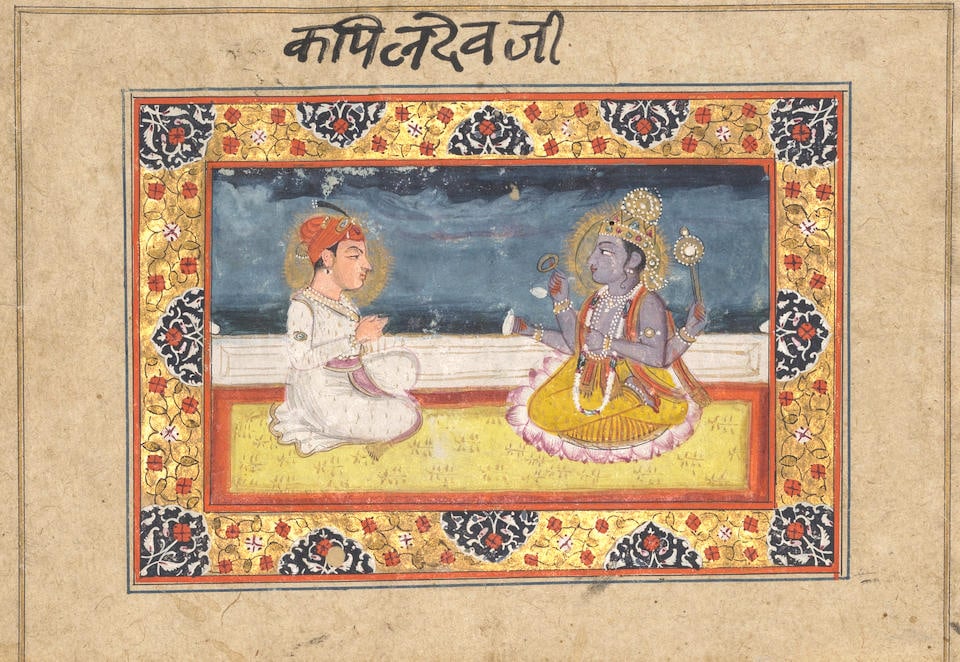 कपिलदेव जी